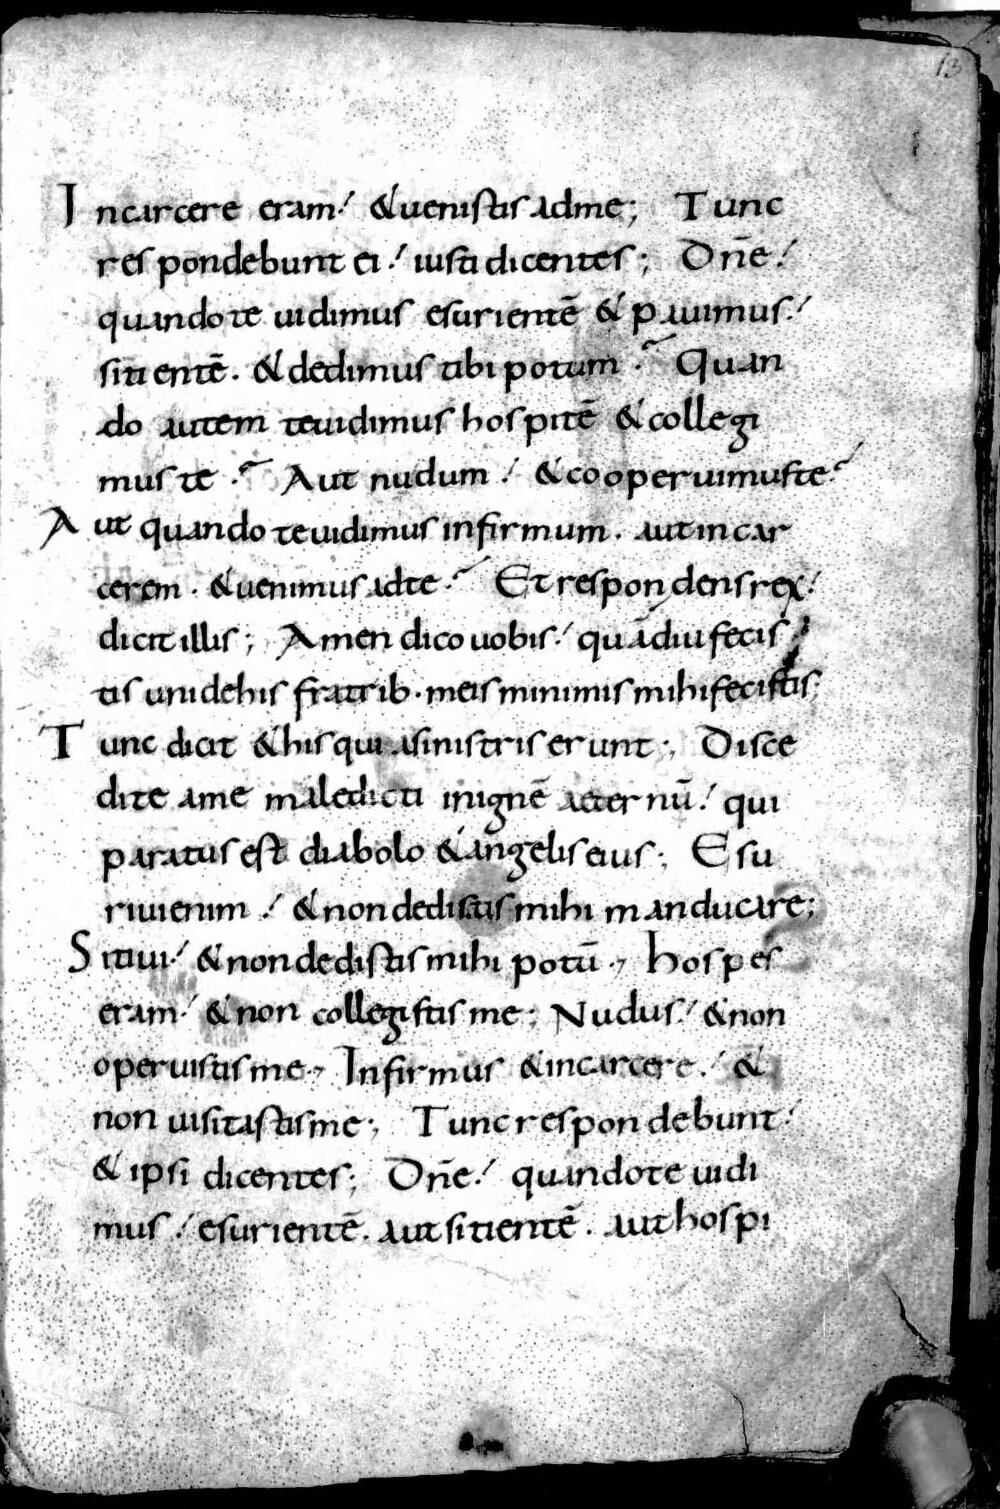 13
In carcere eram. & uenistis adme; Tunc
respondebunt ei. iusti dicentes; Dñe.
quando te uidimus esurientē & pauimus.
sitientē. & dedimus tibi potum? Quan
do autem te uidimus hospitē & collegi
mus te? Aut nudum. & cooperuimus te?
Aut quando te uidimus infirmum. aut in car
cerem. & uenimus ad te? Et respondens rex.
dicit illis; Amen dico uobis. quādiu fecis
tis uni de his fratrib. meis minimis mihi fecistis;
Tunc dicit & his qui asinistris erunt; Disce
dite ame maledicti inignē aeternū. qui
paratus est diabolo & angelis eius; Esu
riui enim. & non dedistis mihi manducare;
Sitiui. & non dedistis mihi potū; hospes
eram. & non collegistis me; Nudus. & non
operuistis me; Infirmus & incarcere. &
non uisitastis me; Tunc respondebunt.
& ipsi dicentes; Dñe. quando te uidi
mus. esurientē. aut sitientē. aut hospi